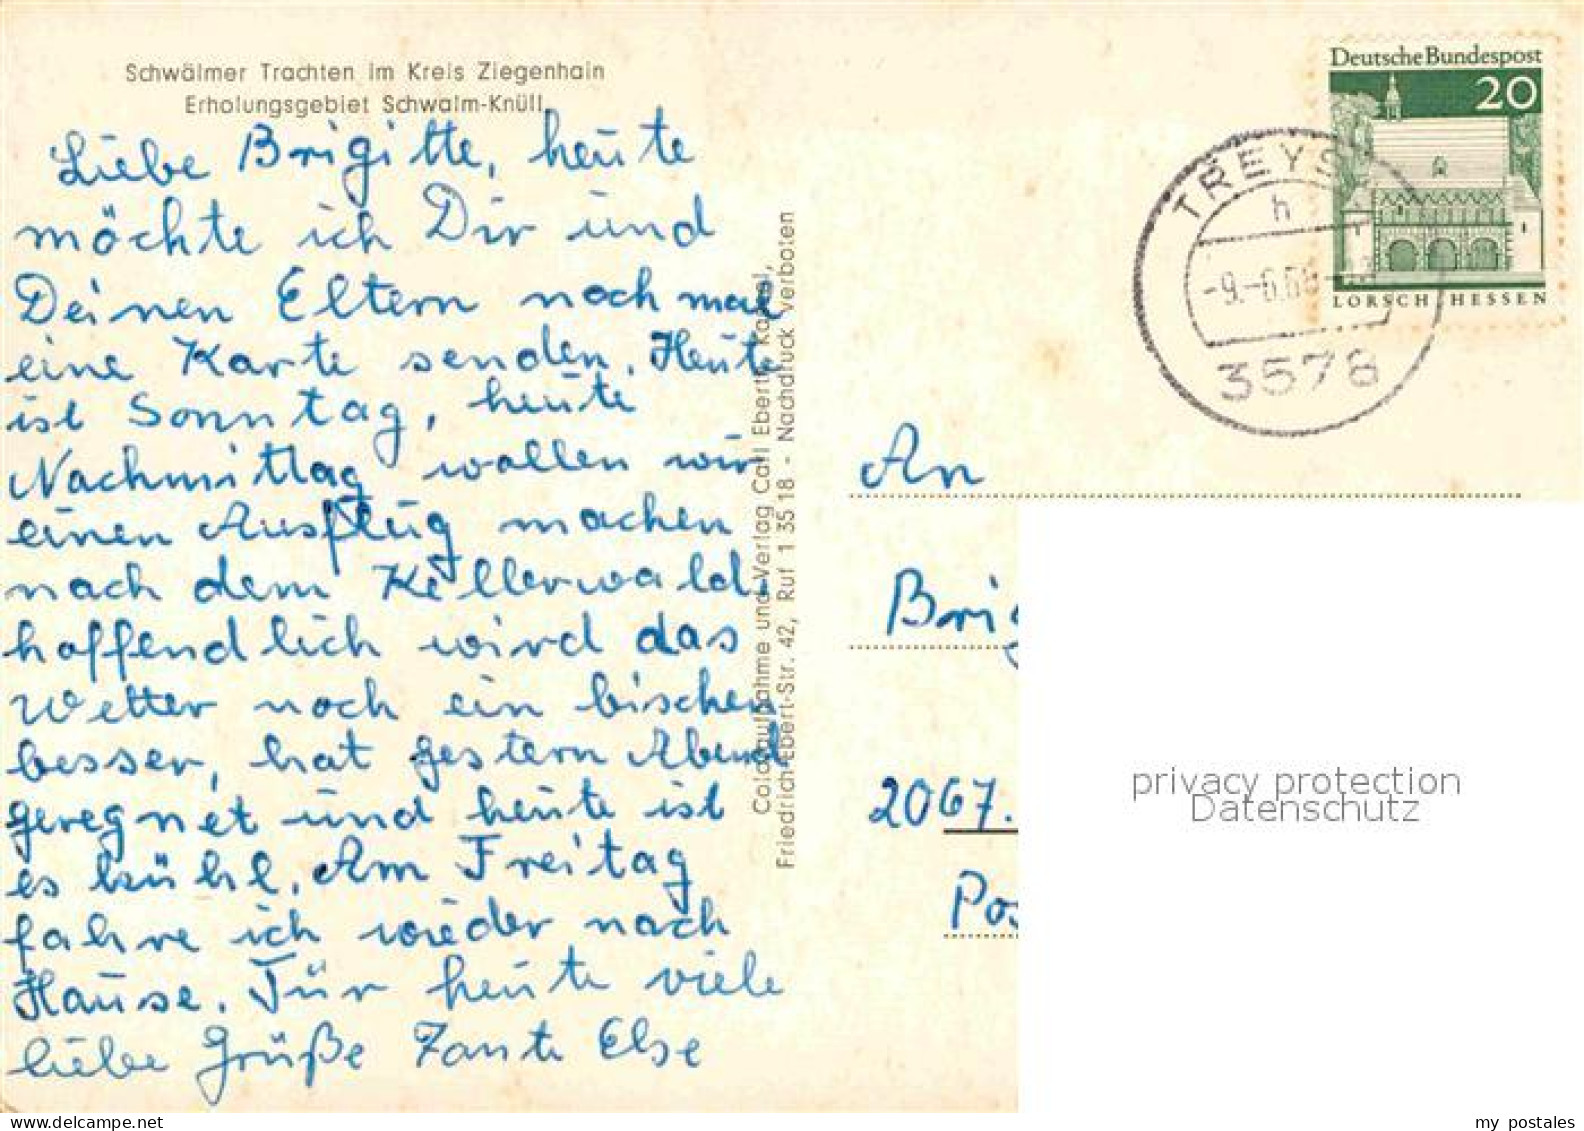 Schwälmer Trachten im Kreis Ziegenhain
Erholungsgebiet Schwalm-Knüll
Liebe Brigitte, heute
möchte ich Dir und
Deinen Eltern noch mal
eine Karte senden. Heute
ist Sonntag, heute
Nachmittag wollen wir
einen Ausflug machen
nach dem Kellerwald,
hoffendlich wird das
Wetter noch ein bischen
besser, hat gestern Abend
geregnet und heute ist
es kühl. Am Freitag
fahre ich wieder nach
Hause. Für heute viele
liebe Grüße Tante Else
Coloraufnahme und Verlag Carl Eberth, Kassel,
Friedrich-Ebert-Str. 42, Ruf 1 35 18 - Nachdruck verboten
Deutsche Bundespost
20
LORSCH HESSEN
TREYS
h
-9.-6.68
3578
An
Brig
2067.
Pos
privacy protection
Datenschutz
my postales